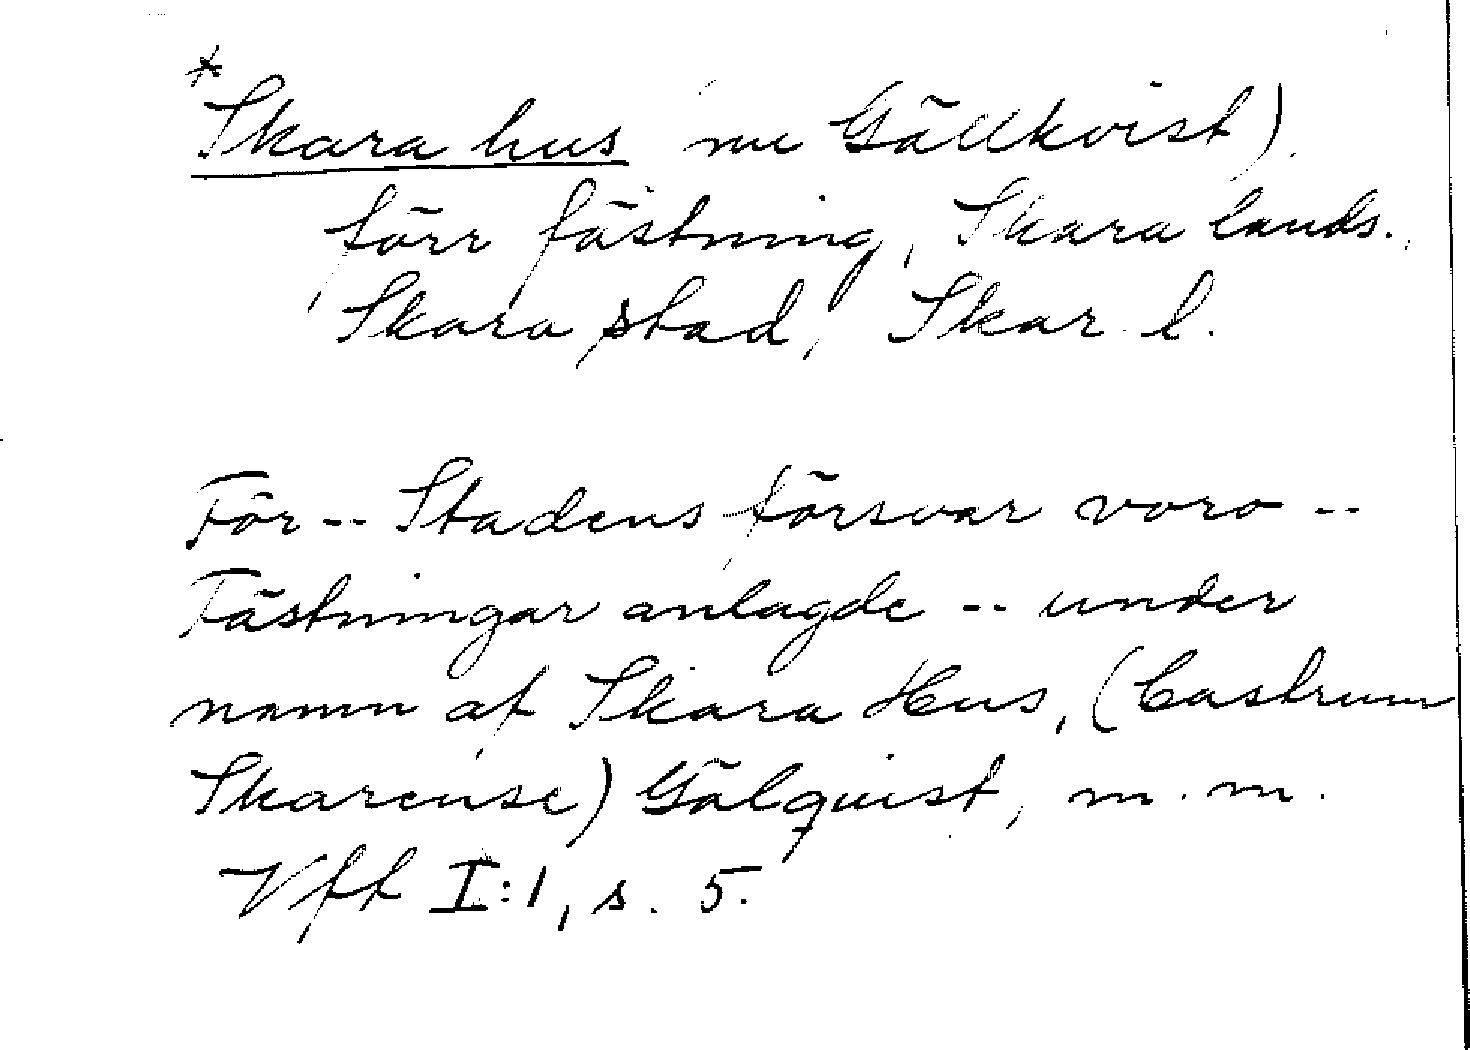 *
Skara hus nu Gällkvist)
förr fästning, Skara lands.,
Skara stad, Skar. l.
För -- Stadens försvar voro --
Fästningar anlagde -- under
namn af Skara Hus, (Castrum
Skarense) Gälquist, m. m.
Vff I:1, s. 5.